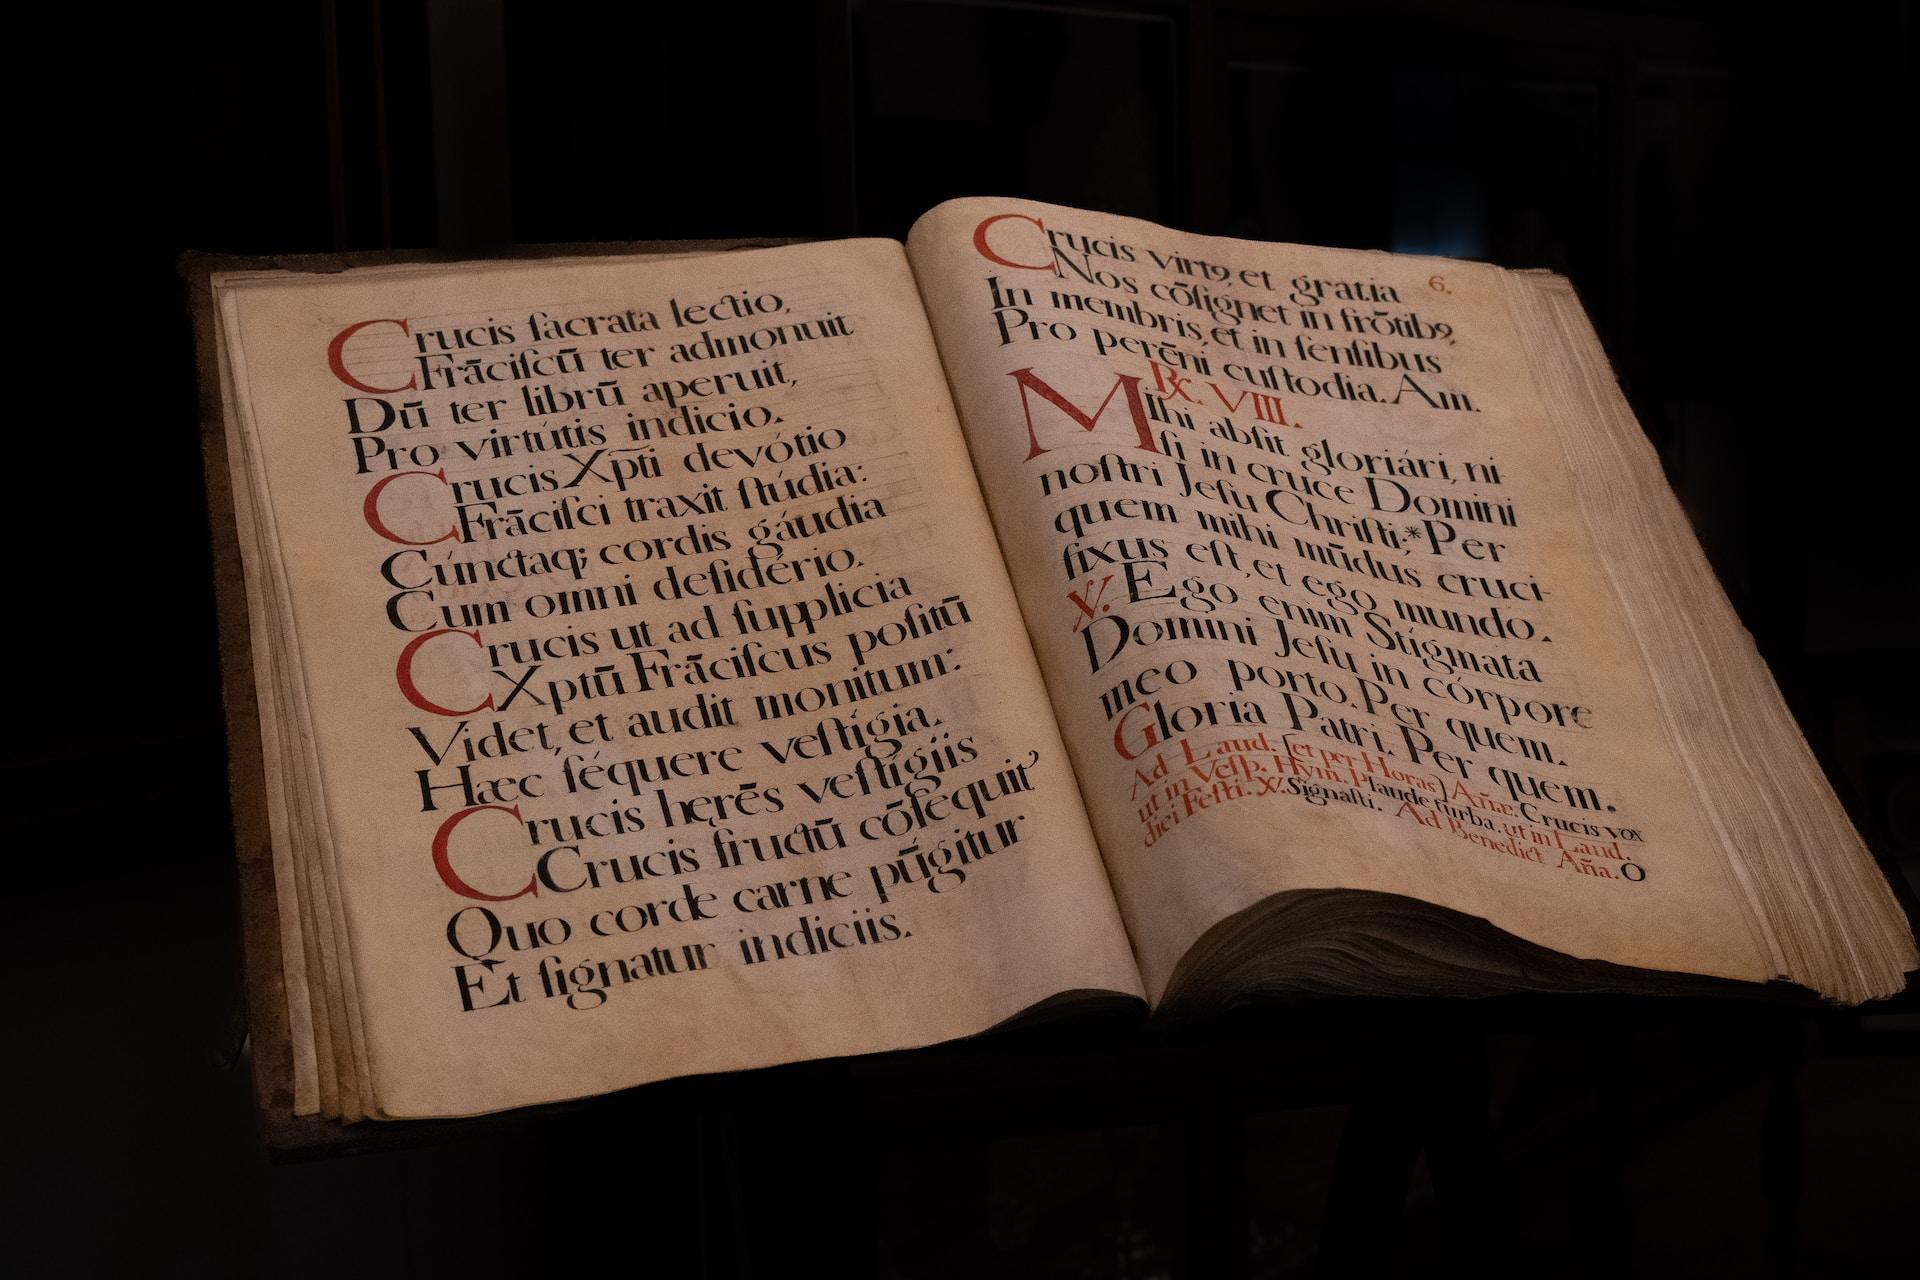 Crucis ſacrata lectio,
Frāciſcū ter admonuit
Dū ter librū aperuit,
Pro virtútis indicio.
Crucis Xp̄ti devótio
Frāciſci traxit ſtúdia:
Cúnctaq; cordis gáudia
Cum omni deſidério.
Crucis ut ad ſupplicia
Xptū Frāciſcus poſitū
Videt, et audit monitum:
Hæc ſéquere veſtígia.
Crucis hęrēs veſtígiis
Crucis fructū cōſequit᾽
Quo corde carne pūgitur
Et ſignatur indiciis.
6.
Crucis virtꝰ, et gratia
Nos cōſignet in frōtibꝰ,
In membris, et in ſenſibus
Pro perēni cuſtodia. Am.
℞. VIII.
MIhi abſit gloriári, ni
ſi in cruce Domini
noſtri Jeſu Chriſti; * Per
quem mihi mūdus cruci-
fixus eſt, et ego mundo.
℣. Ego enim Stígmata
Domini Jeſu in córpore
meo porto. Per quem.
Gloria Patri. Per quem.
Ad Laud. (et per Horas) Añæ: Crucis vox
ut in Veſp. Hym. Plaude turba. ut in Laud.
dici Feſti. ℣. Signaſti. Ad Benedict Aña. O